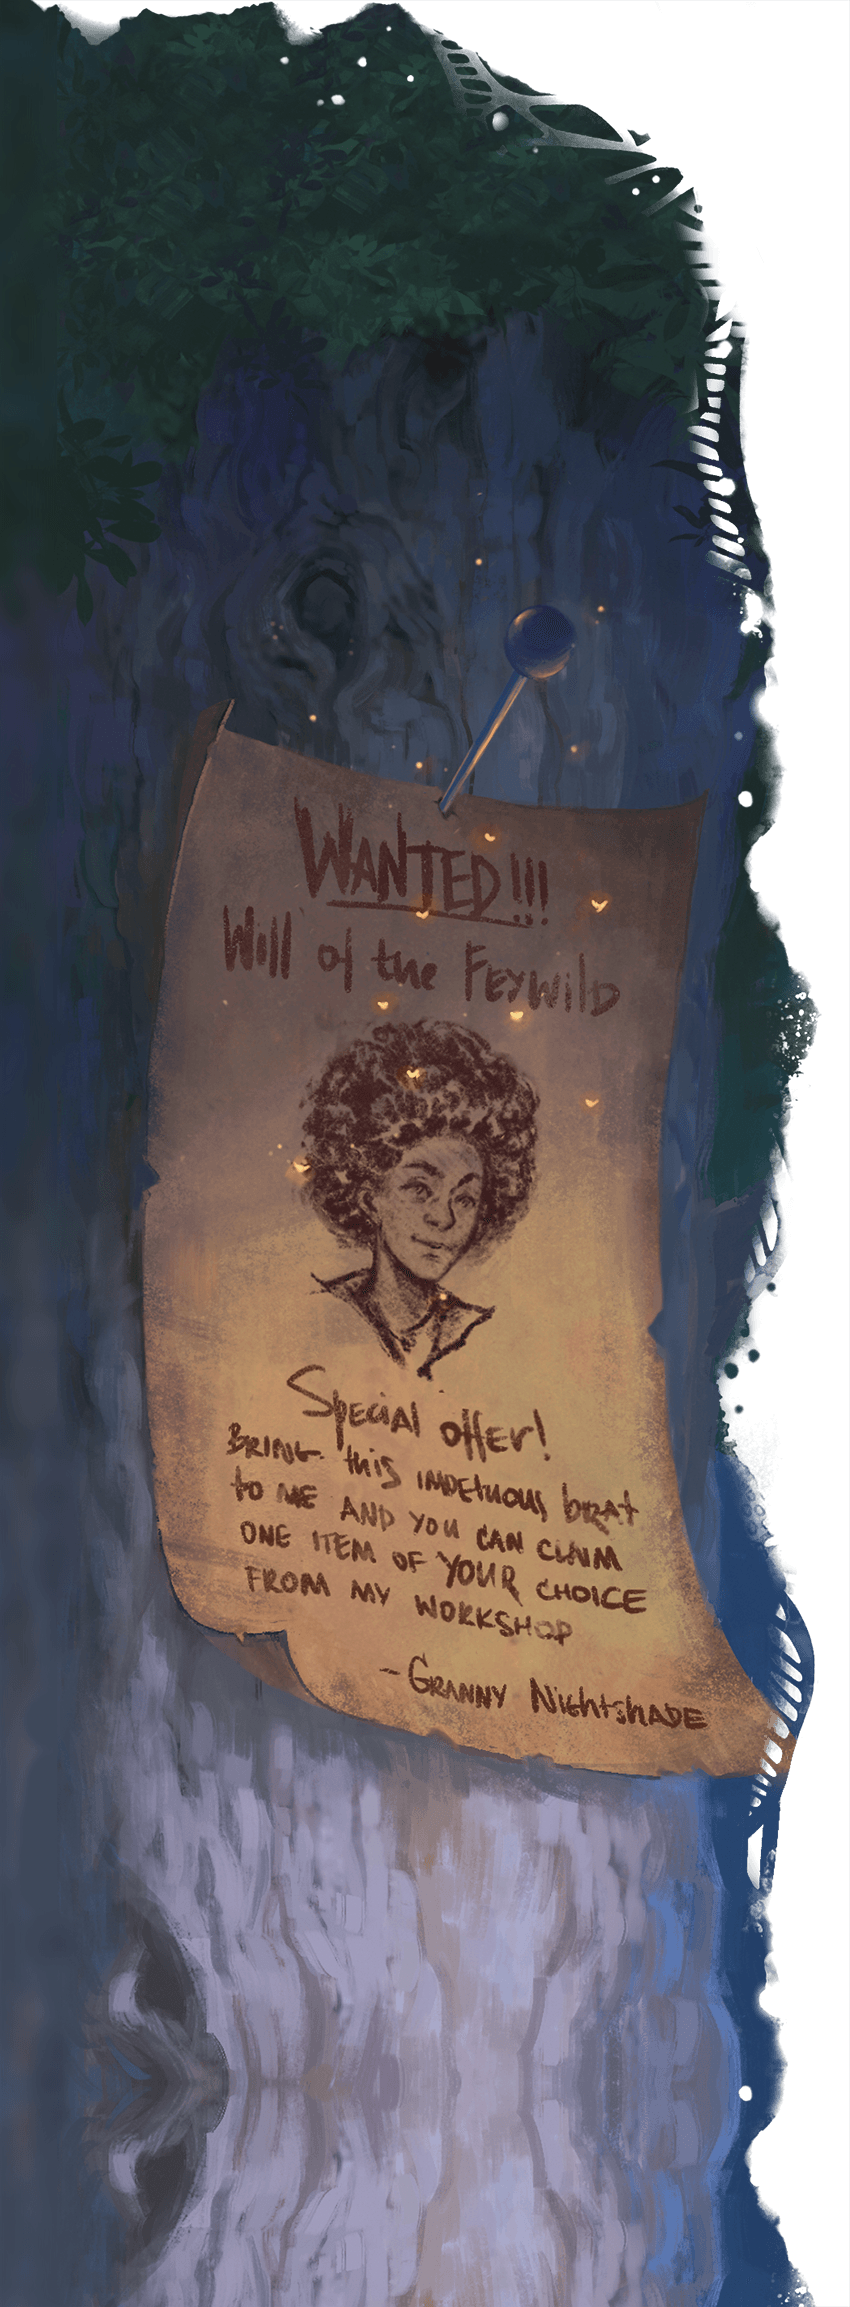 WANTED!!!
Will of the FEYWILD
Special offer!
BRING this impetuous brat
to ME AND YOU CAN CLAIM
ONE ITEM OF YOUR CHOICE
FROM MY WORKSHOP
- GRANNY NightshADE